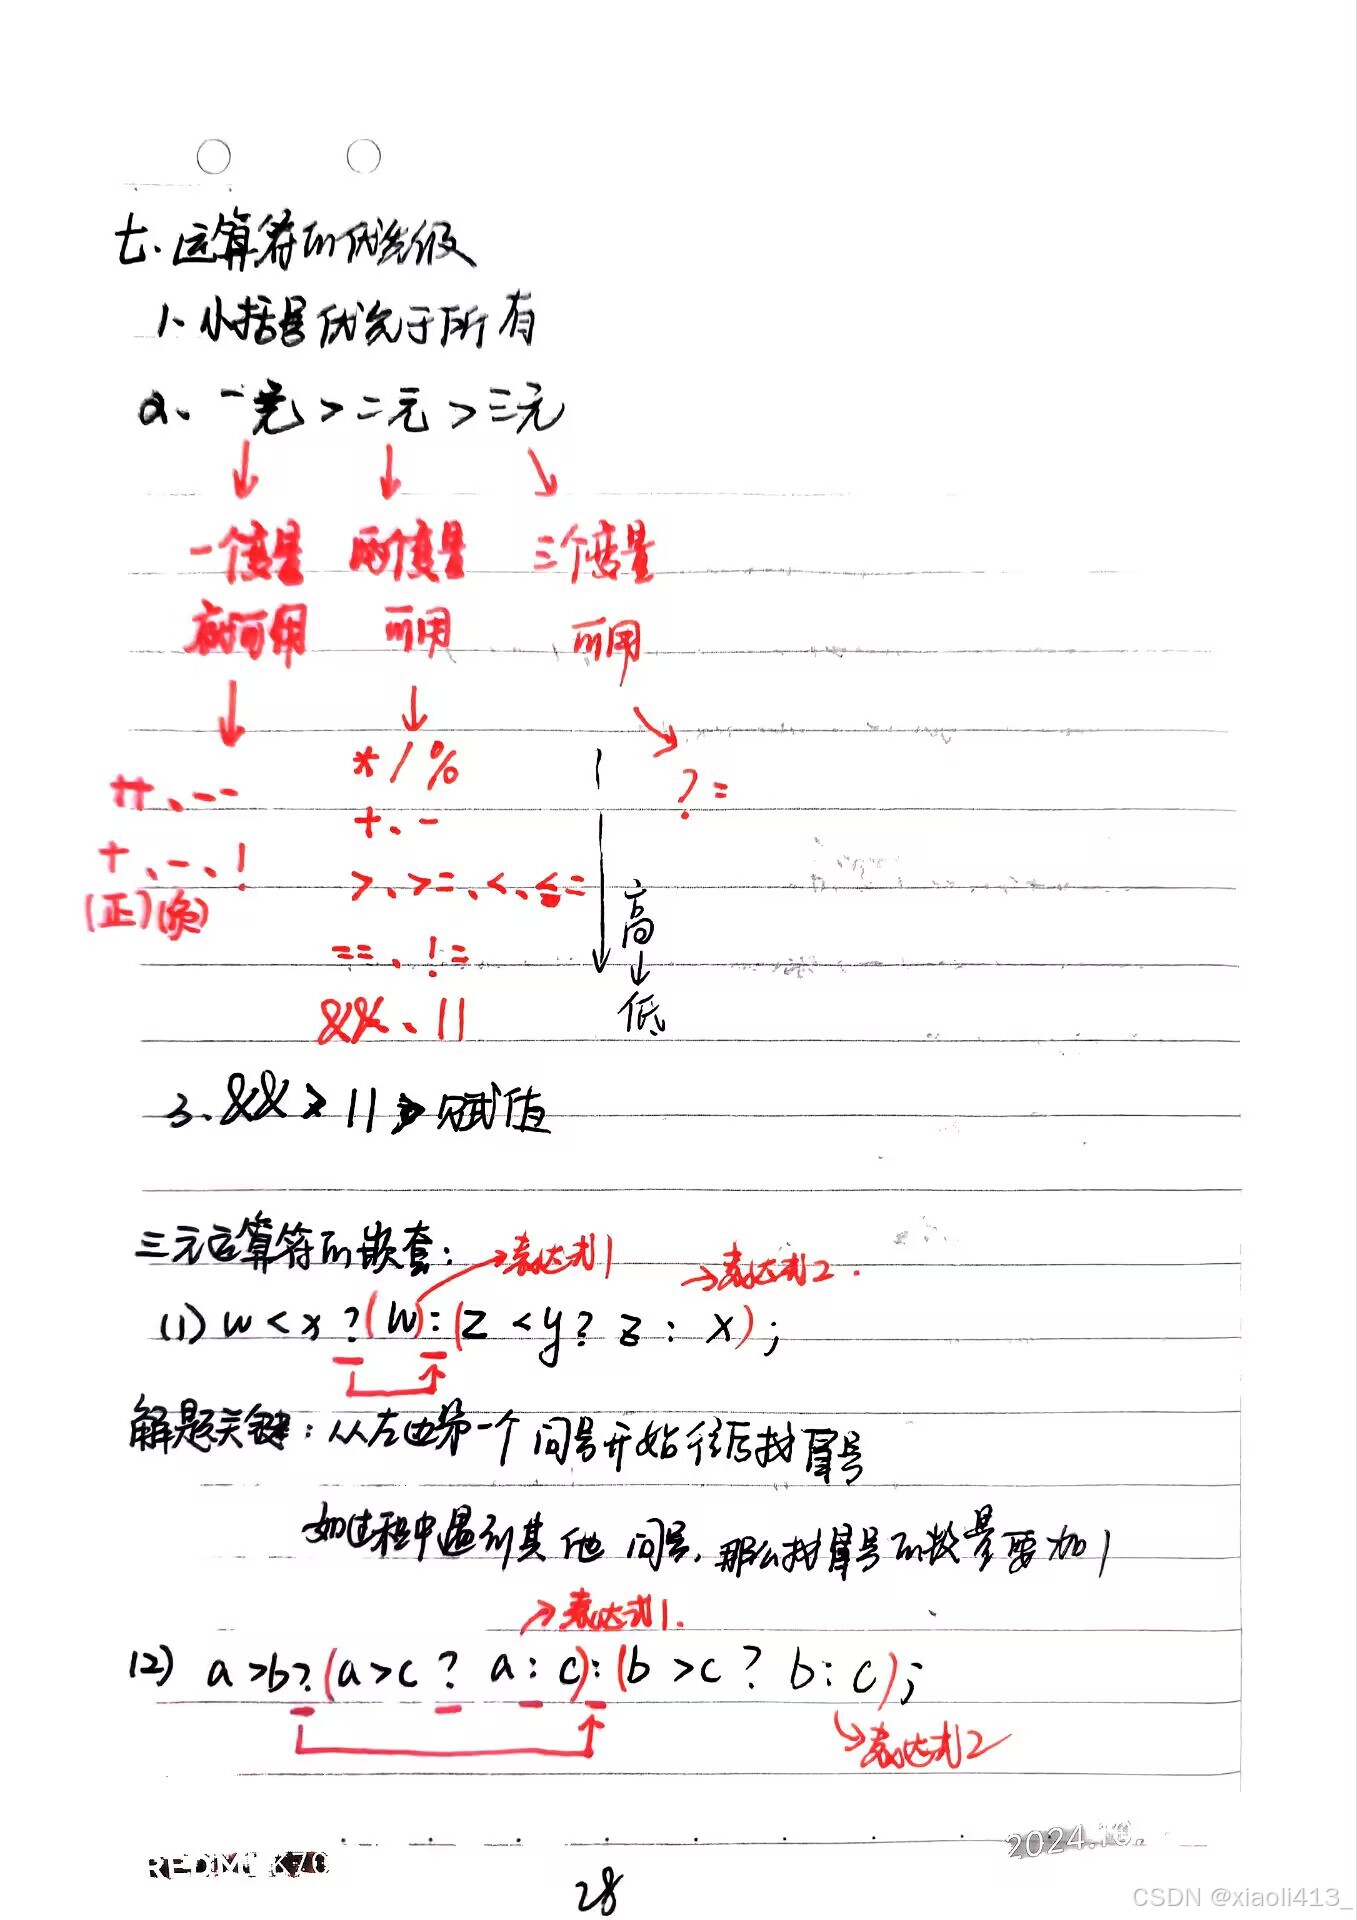 七、运算符的优先级
1、小括号优先于所有
2、一元 > 二元 > 三元
一个变量 两个变量 三个变量
就可用 可用 可用
* / %
?=
++、--
+、-
+、-、!
>、>=、<、<=
(正)(负)
高
==、!=
低
&&、||
3、&& > || > 赋值
三元运算符的嵌套: →表达式1 →表达式2.
(1) w < x ? (w) : (z < y ? z : x);
解题关键: 从左边第一个问号开始往后找冒号
如过程中遇到其他问号, 那么找冒号的数量要加1
→表达式1.
(2) a > b ? (a > c ? a : c) : (b > c ? b : c);
→表达式2
2024.10.
REDMI K70
28
CSDN @xiaoli413_